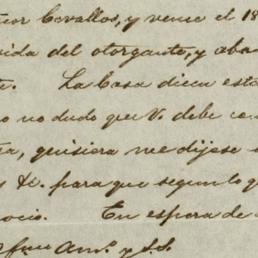 ñor Cevallos, y vence el 18
vida del otorgante, y aba
te. La Casa dicen esta
o no dudo que V. debe con
ta, quisiera me dijese s
y ti. para que segun lo q
ocio. En espera de
Am.º y S.S.